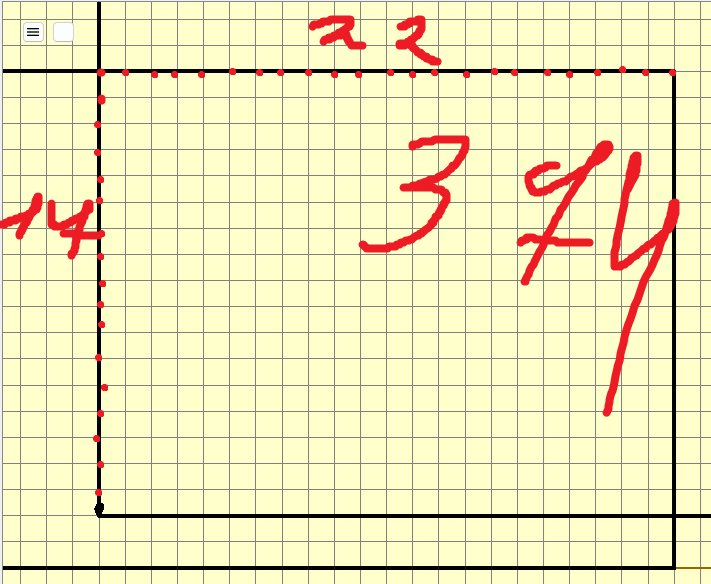 22
17
374